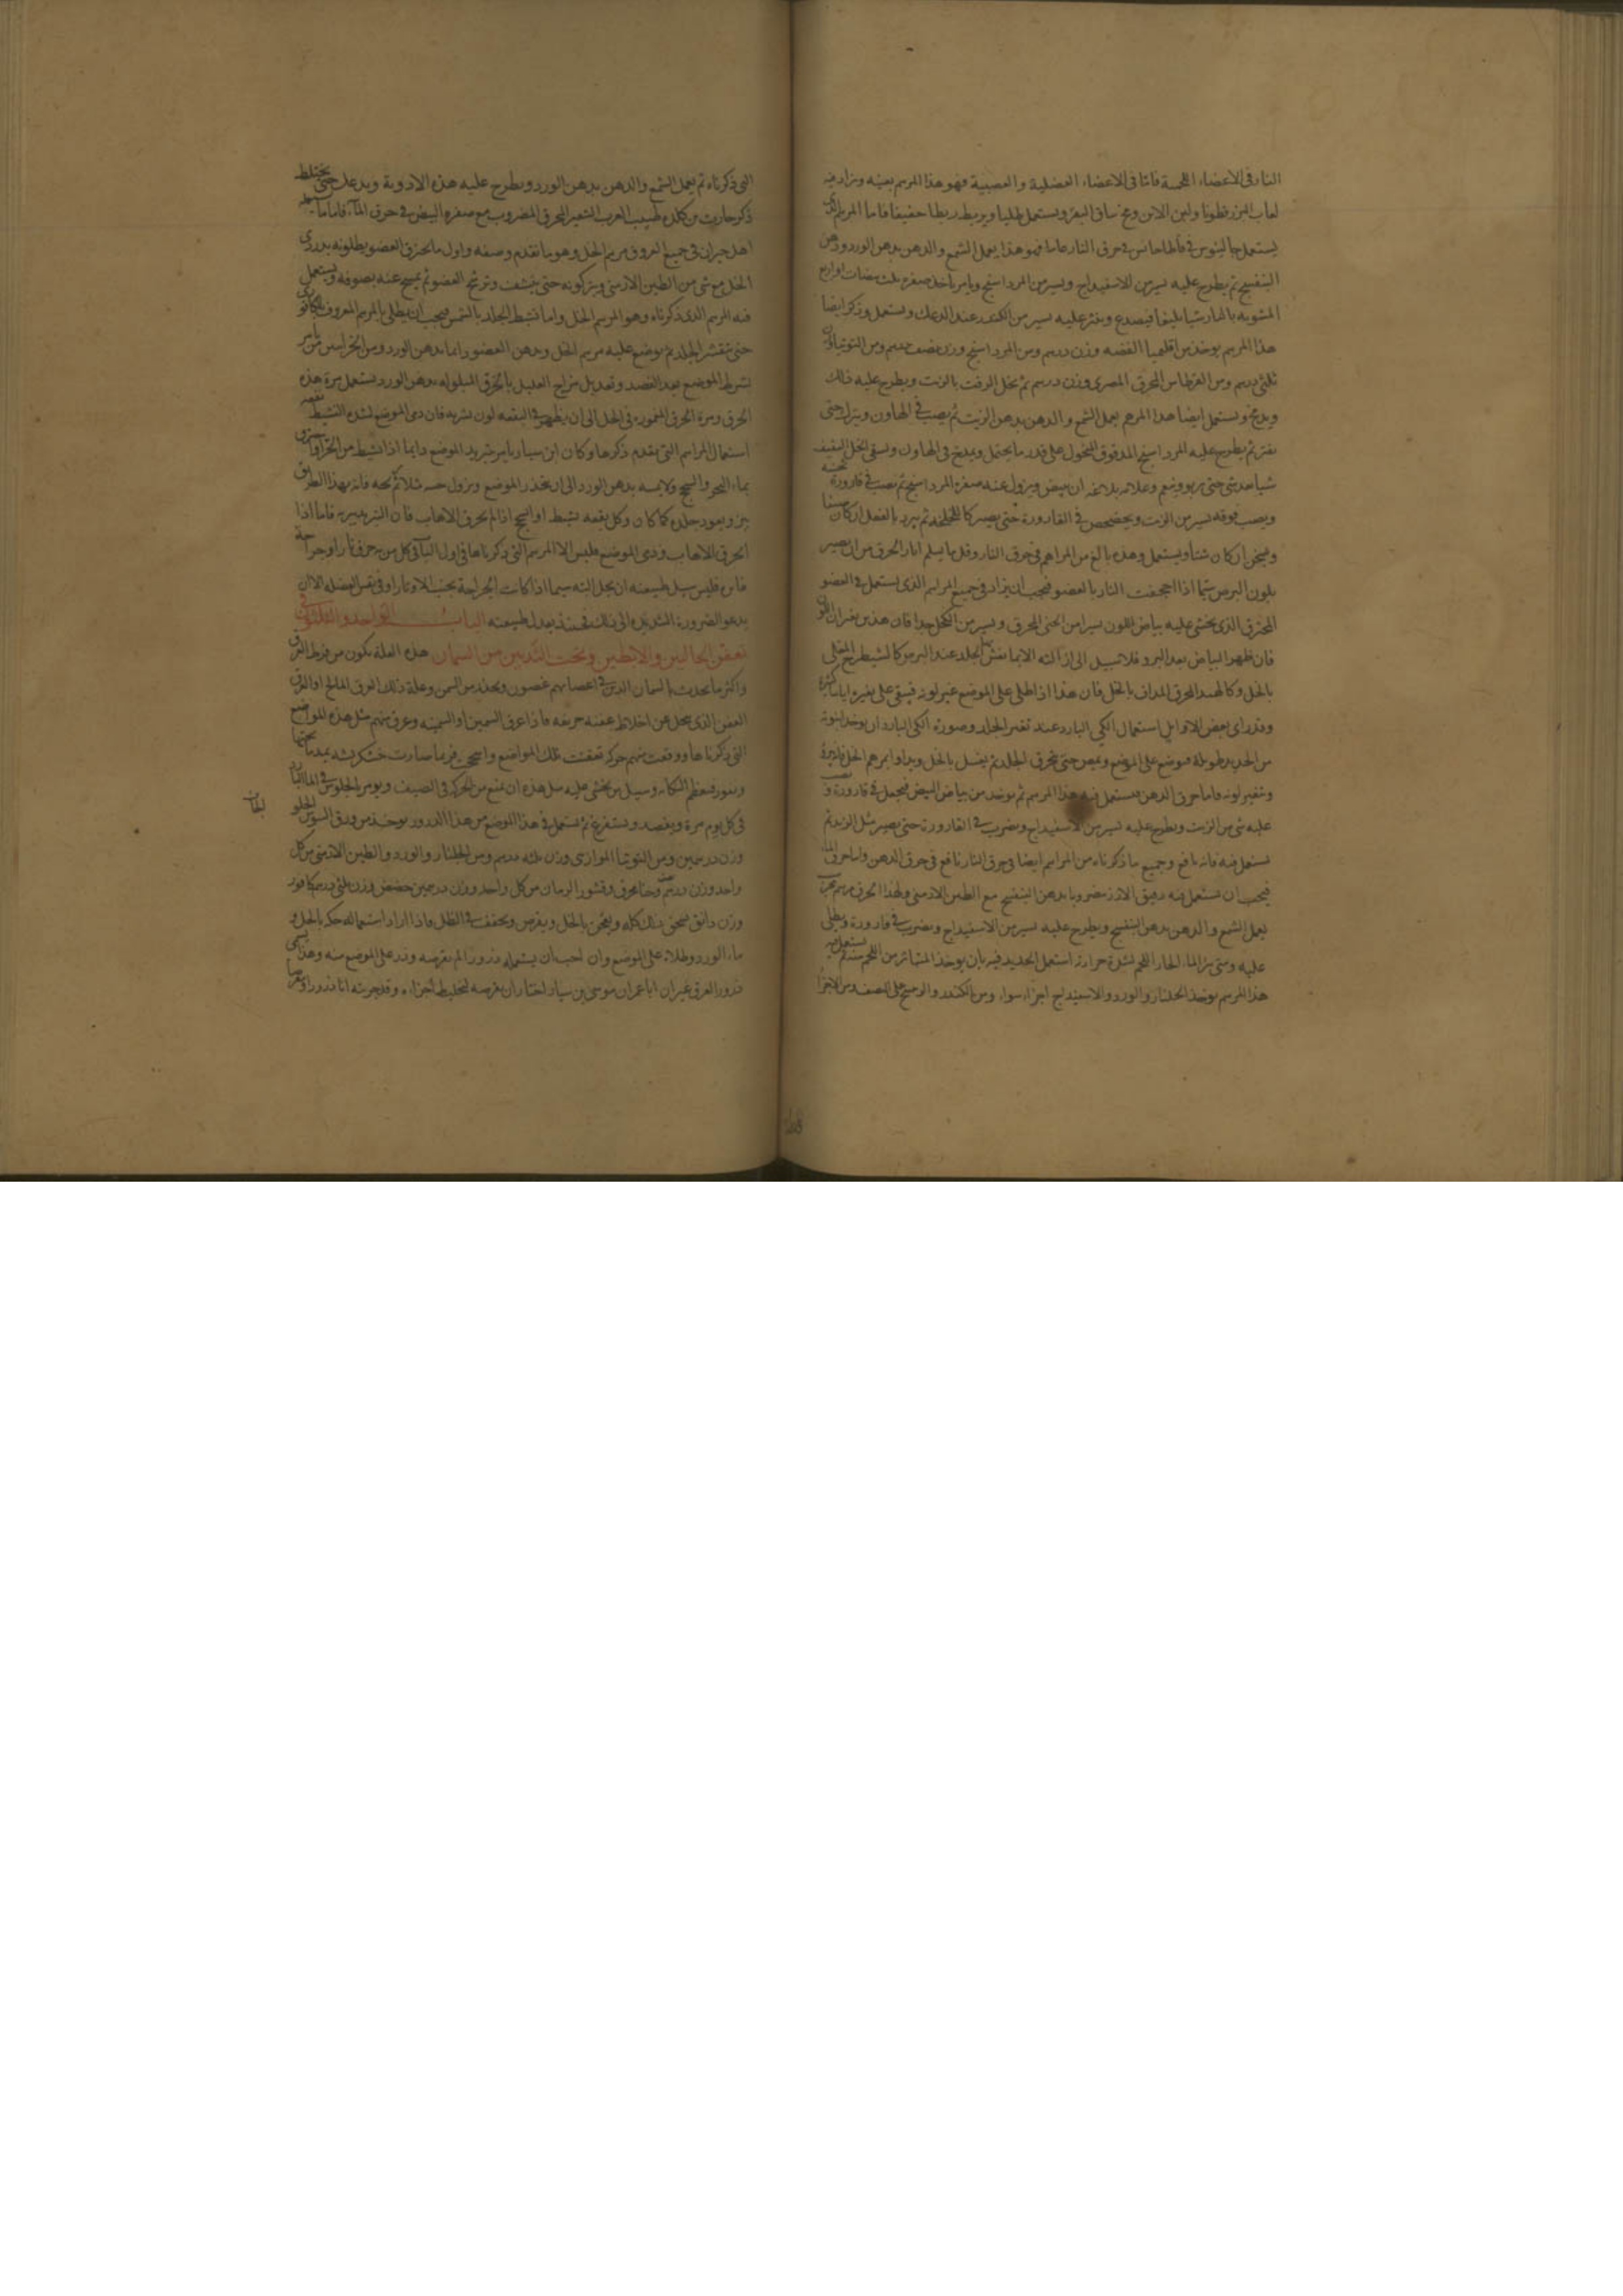 النار فى الاعضاء اللحمية فاما فى الاعضاء العضلية والعصبية فهو هذا المرهم بعينه ويزاد فيه
لعاب البزرقطونا ولبن الاتن ومخ ساق البقر ويستعمل طليا ويربط ربطا خفيفا فاما المرهم الذى
يستعمل جالينوس فى قاطاجانس فى حرق النار عاما فهو هذا يعمل الشمع والدهن بدهن الورد ودهن
البنفسج ثم يطرح عليه يسير من الاسفيداج ويسير من المرداسنج ويامر باخذ صفرة ثلث بيضات او اربع
المشوية بالنار شيا بليغا فيصدع وينثر عليه يسير من الكندر عند الدعك ويستعمل وذكر ايضا
هذا المرهم يوخذ من اقليميا الفضه وزن درهم ومن المرداسنج وزن نصف درهم ومن التوتيا وزن
ثلثى درهم ومن القرطاس المحرق المصرى وزن درهم ثم يحل الزفت بالزيت ويطرح عليه ذلك
ويدعك ويستعمل ايضا هذا المرهم يعمل الشمع والدهن بدهن الزيت ثم يصب فى الهاون ويترك حتى
يفتر ثم يطرح عليه المرداسنج المدقوق المنخول على قدر ما يحتمل ويدعك فى الهاون ويسقى الخل الثقيف
شيا بعد شى حتى يربو وينعم وعلامة بلاغه ان يبيض ويزول عنه صفرة المرداسنج ثم يصب فى قارورة
ويصب فوقه يسير من الزيت ويخضخض فى القارورة حتى يصير كاللخلخه ثم يبرد بالفعل ان كان صيفا
ويسخن ان كان شتا ويستعمل وهذه بالغ من المراهم فى حرق النار وقل ما يسلم اثار الحرق من ان يصير
بلون البرص سيما اذا اجحفت النار بالعضو فيجب ان يزاد فى جميع المراهم الذى يستعمل فى العضو
المحترق الذى يخشى عليه بياض اللون يسيرا من الحنى المحرق ويسير من الكحل جدا فان هذين يغيران اللون
فان ظهر البياض بعد البرو فلا سبيل الى ازالته الا بما نقش الجلد عند البرص كالشيطرج المغلى
بالخل وكالهند المحرق المداف بالخل فان هذا اذا طلى على الموضع غير لونه فيبقى على تغيره اياما كثيرة
وقد راى بعض الاوايل استعمال الكى البارد عند تغير الجلد وصورة الكى البارد ان يوخذ انبوبه
من الحديد طويلة فيوضع على الموضع ويمص حتى يحرق الجلد ثم يغسل بالخل ويداوا بمرهم الخل
وتغير لونه واما حرق الدهن فيستعمل فيه هذا المرهم ثم يوخذ من بياض البيض فيجعل فى قارورة ويصب
عليه شى من الزيت ويطرح عليه يسير من الاسفيداج ويضرب فى القارورة حتى يصير مثل الزبد ثم
يستعمل منه فانه نافع وجميع ما ذكرناه من المراهم ايضا فى حرق النار نافع فى حرق الدهن واما حرق الماء
فيجب ان يستعمل منه دقيق الارز مضروبا بدهن البنفسج مع الطين الارمنى ولهذا الحرق مرهم مجرب
يعمل الشمع والدهن بدهن البنفسج ويطرح عليه يسير من الاسفيداج ويضرب فى قارورة ويطلى
عليه ومتى الماء الحار اللحم لشدة حرارته استعمل الحديد فيه بان يوخذ المتناثر من اللحم ثم يستعمل فيه
هذا المرهم يوخذ الجلنار والورد والاسفيداج اجزاء سواء ومن الكندر والوسخ على النصف من الاجزا
التى ذكرناه ثم يعمل الشمع والدهن بدهن الورد ويطرح عليه هذه الادوية ويدعك حتى يختلط
ذكر حارث بن كلده طبيب العرب الشعير المحرق المضروب مع صفرة البيض فى حرق الماء فاما ما
اهل حران فى جميع الحروق مرهم الخل وهو ما تقدم وصفه واول ما يحترق العضو يطلونه بدردى
الخل مع شى من الطين الارمنى ويتركونه حتى ينشف وترشح العضو ثم يمسح عنه بصوفه ويستعمل
فيه المرهم الذى ذكرناه وهو المرهم الخل واما تشيط الجلد بالشمس فيجب ان يطلى بالمرهم المعروف بالكافورى
حتى ينقشر الجلد ثم يوضع عليه مرهم الخل ويدهن العضو دايما بدهن الورد ومن الحراس من يامر
بشرط الموضع بعد الفصد وتعديل مزاج العليل بالخرق المبلوله بدهن الورد يستعمل مرة هذه
الخرق ومرة الخرق المغمورة فى الخل الى ان يظهر فى البقعه لون نشريه فان دمى الموضع لشدة التشيط
استعمال المراهم التى تقدم ذكرها وكان ابن سيار يامر بتبريد الموضع دايما اذا تشيط من الحر
بماء البحر والثلج ولا يمسه بدهن الورد الى ان يخدر الموضع ويزول حسه فانه بهذا الطريق
يبر ويعود جلده كما كان وكل بقعه تشيط او انسحج اذا لم يحرق الاهاب فان التدبير به فاما اذا
احرق الاهاب ودمى الموضع فليس الا المرهم التى ذكرناها فى اول الباب وكل من به حرق نار او جراحة
فليس سبيل طبيعته ان يحل البته سيما اذا كانت الجراحة بجنب الاوتار او فى نفس العضله الا ان
يدعو الضرورة الشديدة الى ذلك فحينئذ يعدل طبيعته الباب الواحد والثلثون فى
تعفن الحالبين والابطين وتحت الثديين من السمان هذه العلة تكون من فرط العرق
واكثر ما يحدث بالسمان الذين فى اعضايهم غضون وتحدث من السمن وعلة ذلك العرق المالح او العرق
العفن الذى يتحلل عن اخلاط عفنه حريفه فاذا عرق السمين او السمينه وعرق منهم مثل هذه المواضع
التى ذكرناها ووقعت منهم حركة تعفنت تلك المواضع وانسحجت فربما صارت خشكريشه بمدتها تحتها
وتغور فيعظم النكايه وسبيل من يخشى عليه مثل هذه ان يمنع من الحركة فى الصيف ويومر بالجلوس فى الماء البارد
فى كل يوم مرة ويفصد ويستفرغ ثم يستعمل فى هذا الموضع من هذا الذرور يوخذ من ورق السوسن
وزن درهمين ومن التوتيا الموازى وزن ثلثه درهم ومن الجلنار والورد والطين الارمنى من كل
واحد وزن درهم وحنا محرق وقشور الرمان من كل واحد وزن درهمين حضض وزن ثلثى درهم كافور
وزن دانق يسحق ذلك كله ويعجن بالخل ويقرص ويجفف فى الظل فاذا اراد استعماله حكه بالخل و
ماء الورد وطلاه على الموضع وان احب ان يستعمله ذرورا لم يقرصه وذر على الموضع منه وهذا يسمى
ذرور العرق غير ان ابا عمران موسى بن سيار اختار ان يقرصه لتخليط اجزاءه وقد جربته انا ذرورا وقرصا